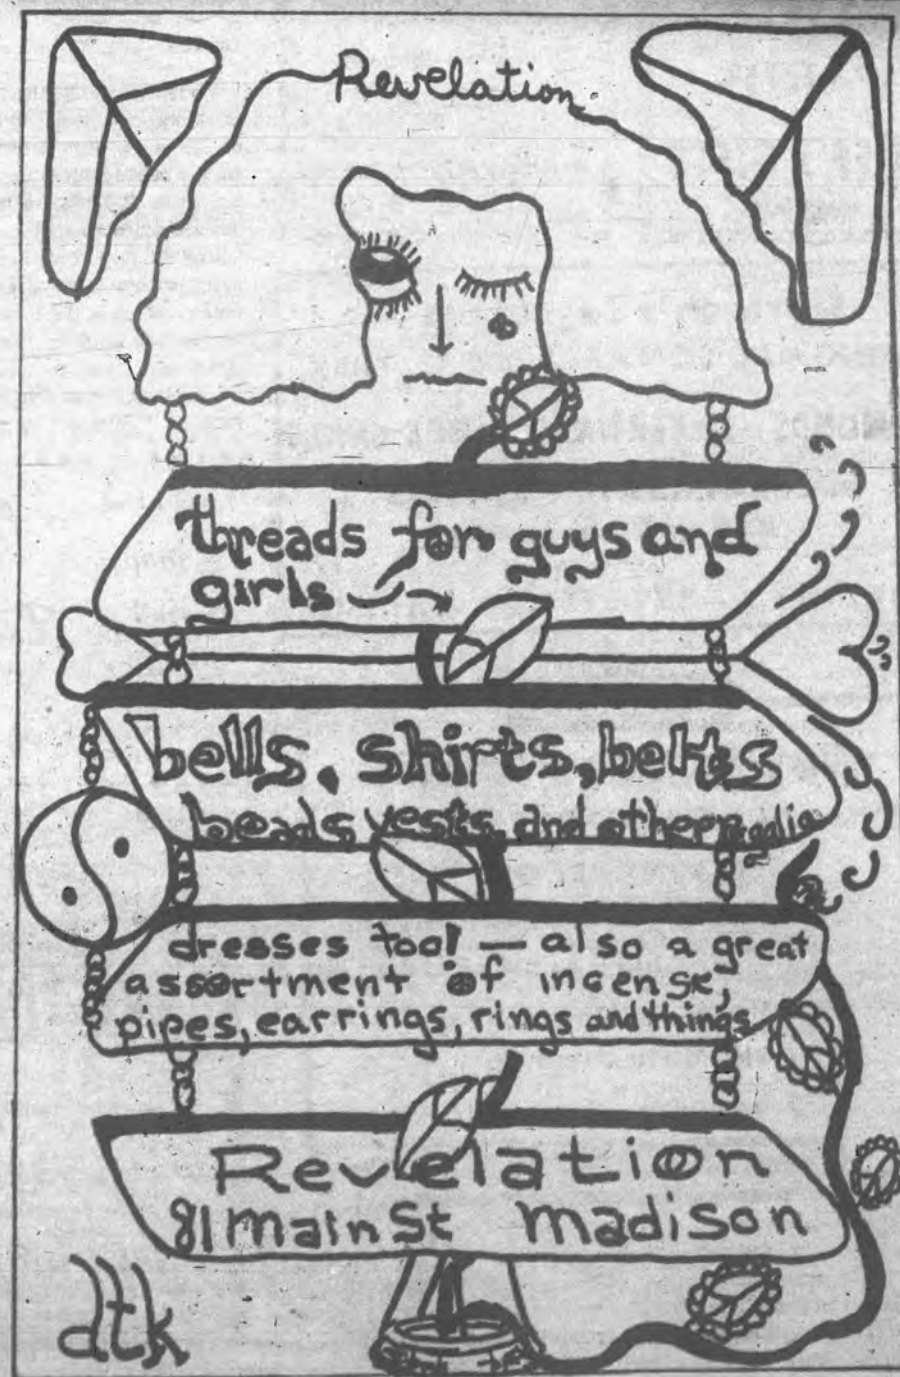 Revelation
threads for guys and
girls
bells, shirts, belts
beads, vests, and other regalia
dresses too! — also a great
assortment of incense,
pipes, earrings, rings and things
Revelation
81 Main St Madison
dtk